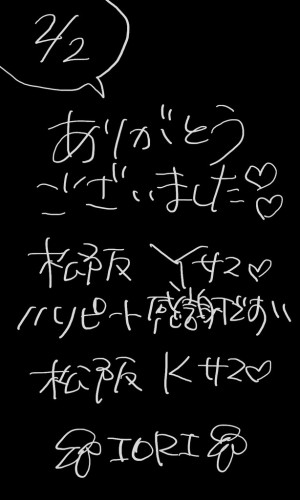 2/2
ありがとう
ございました♡♡
松阪 Yサン♡
リピート感謝です!!
松阪 Kサン♡
IORI